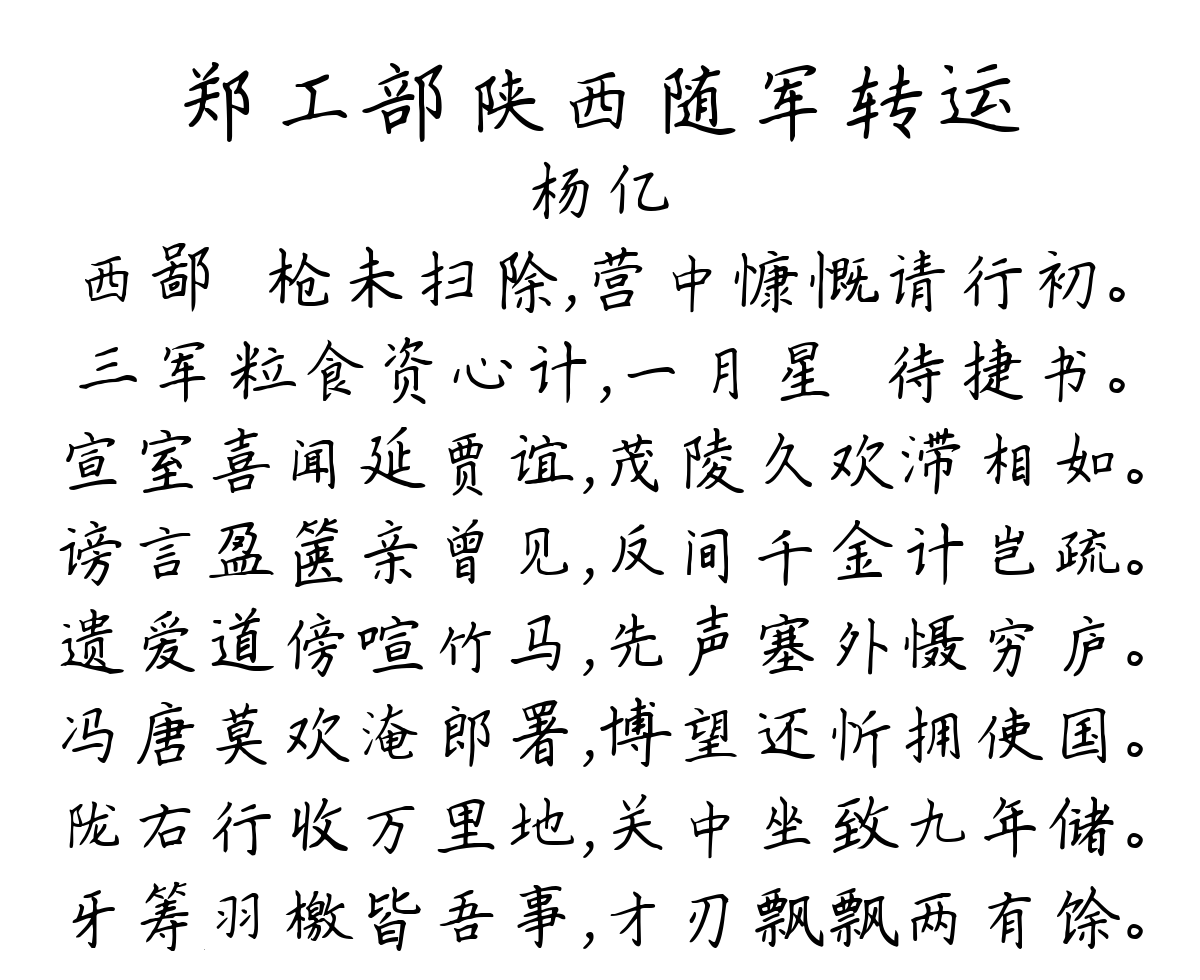 郑工部陕西随军转运
杨亿
西鄙 枪未扫除,营中慷慨请行初。
三军粒食资心计,一月星 待捷书。
宣室喜闻延贾谊,茂陵久欢滞相如。
谤言盈箧亲曾见,反间千金计岂疏。
遗爱道傍喧竹马,先声塞外慑穷庐。
冯唐莫欢淹郎署,博望还忻拥使国。
陇右行收万里地,关中坐致九年储。
牙筹羽檄皆吾事,才刃飘飘两有馀。